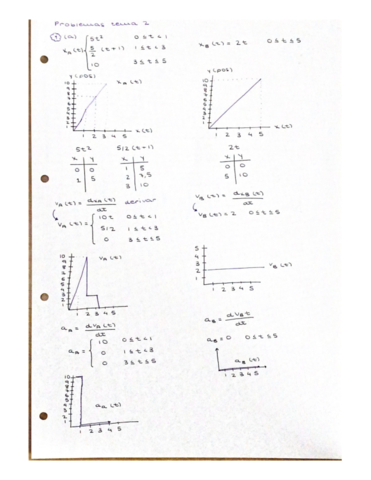 Problemas tema 2
1 (a)
5t² 0≤t<1
xA(t) 5/2 (t+1) 1≤t<3
10 3≤t≤5
xB(t) = 2t 0≤t≤5
y (pos)
xA(t)
x(t)
1 2 3 4 5
y (pos)
x(t)
1 2 3 4 5
5t²
x y
0 0
1 5
5/2 (t+1)
x y
1 5
2 7,5
3 10
2t
x y
0 0
5 10
vA(t) = dxA(t)/dt derivar
vA(t) =
10t 0≤t<1
5/2 1≤t<3
0 3≤t≤5
vB(t) = dxB(t)/dt
vB(t) = 2 0≤t≤5
vA(t)
1 2 3 4 5
5
4
3
2
1
vB(t)
1 2 3 4 5
aA = dvA(t)/dt
aA =
10 0≤t<1
0 1≤t<3
0 3≤t≤5
aB = dvB t/dt
aB = 0 0≤t≤5
aB(t)
1 2 3 4 5
aA(t)
1 2 3 4 5